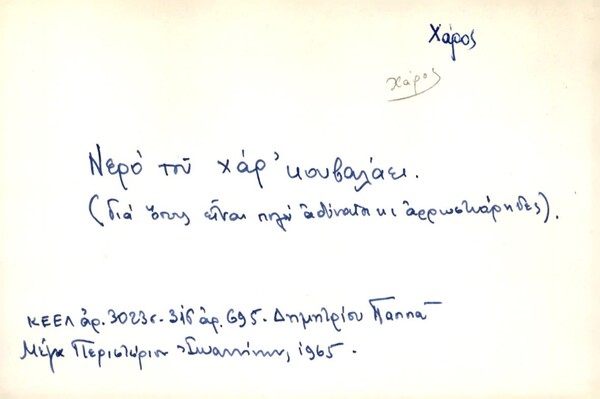 Χάρος
χάρος
Νερό τοῦ χάρ' κουβαλάει.
(διά ὅσους εἶναι πολύ ἀδύνατοι κι ἀρρωστιάρηδες).
ΚΕΕΛ ἀρ. 3023 σ. 316 ἀρ. 695. Δημητρίου Παππᾶ
Μέγα Περιστέριον Ἰωαννίνων, 1965.